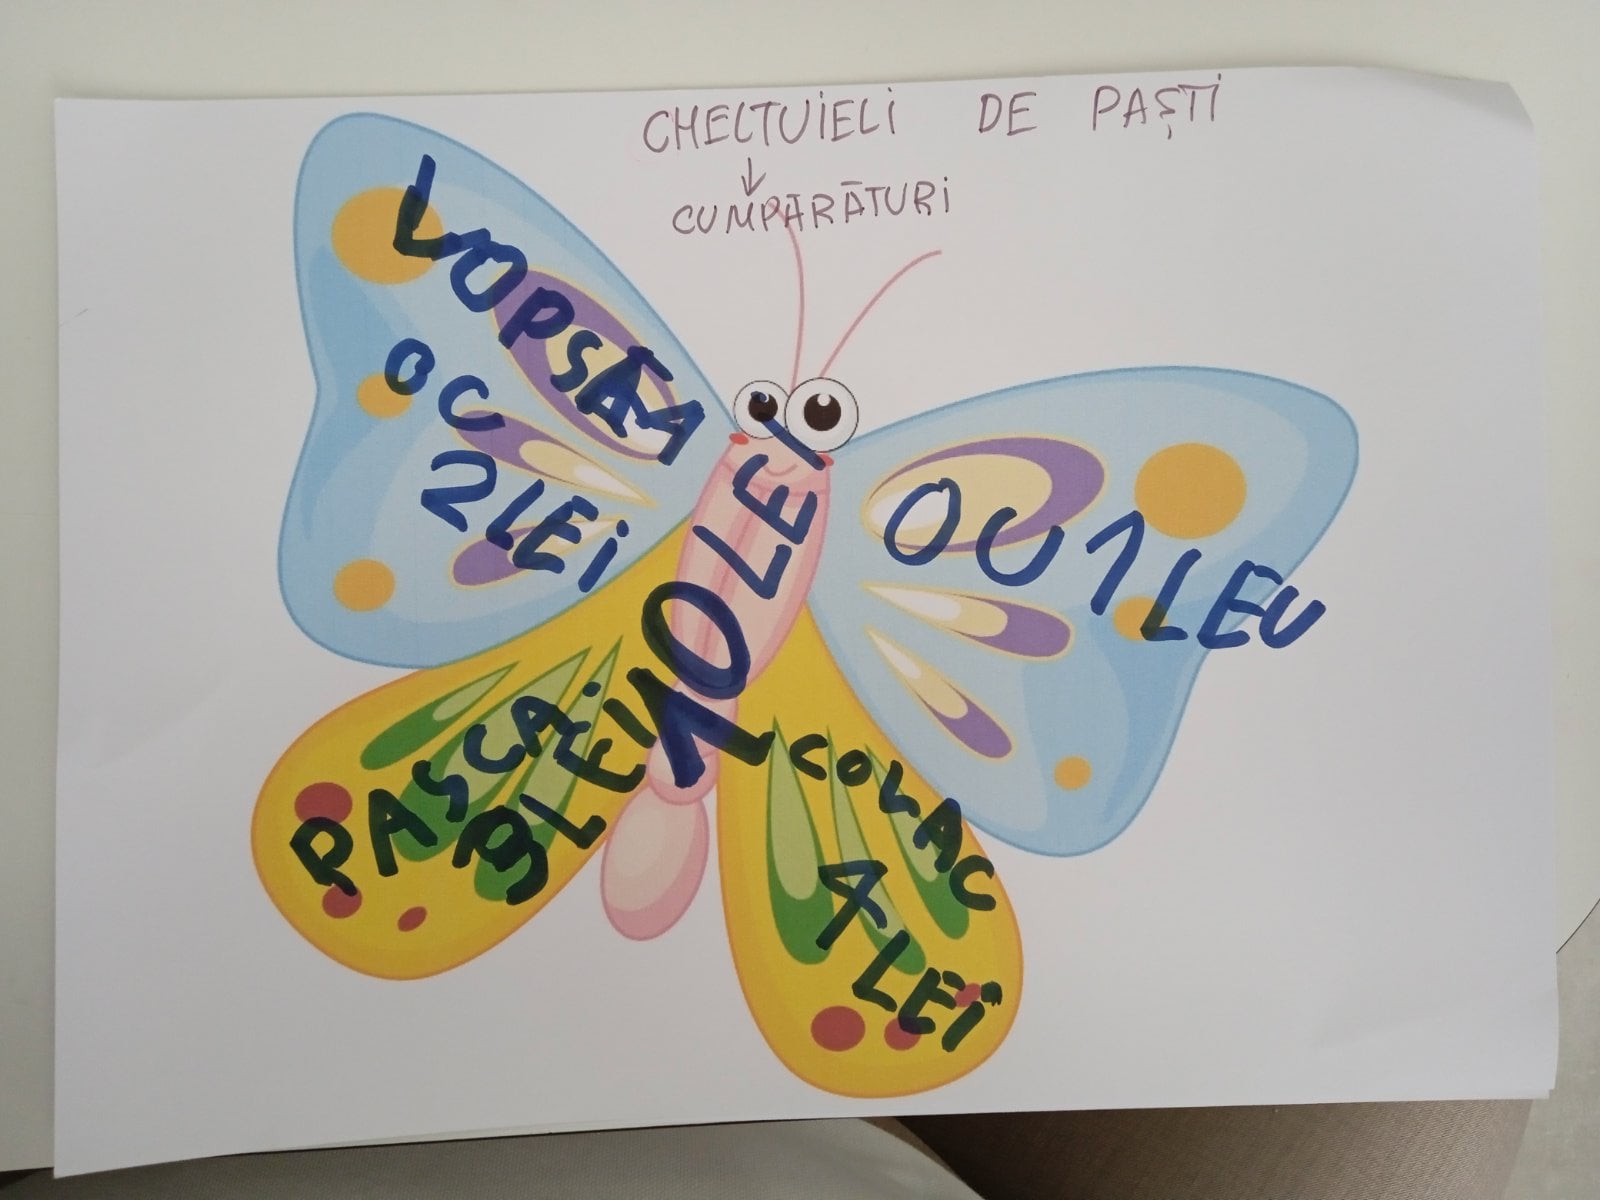 CHELTUIELI DE PAȘTI
↓
CUMPĂRĂTURI
VOPSĂM
OC
2 LEI
10 LEI
OU 1 LEU
PASCA
3 LEI
COLAC
4 LEI